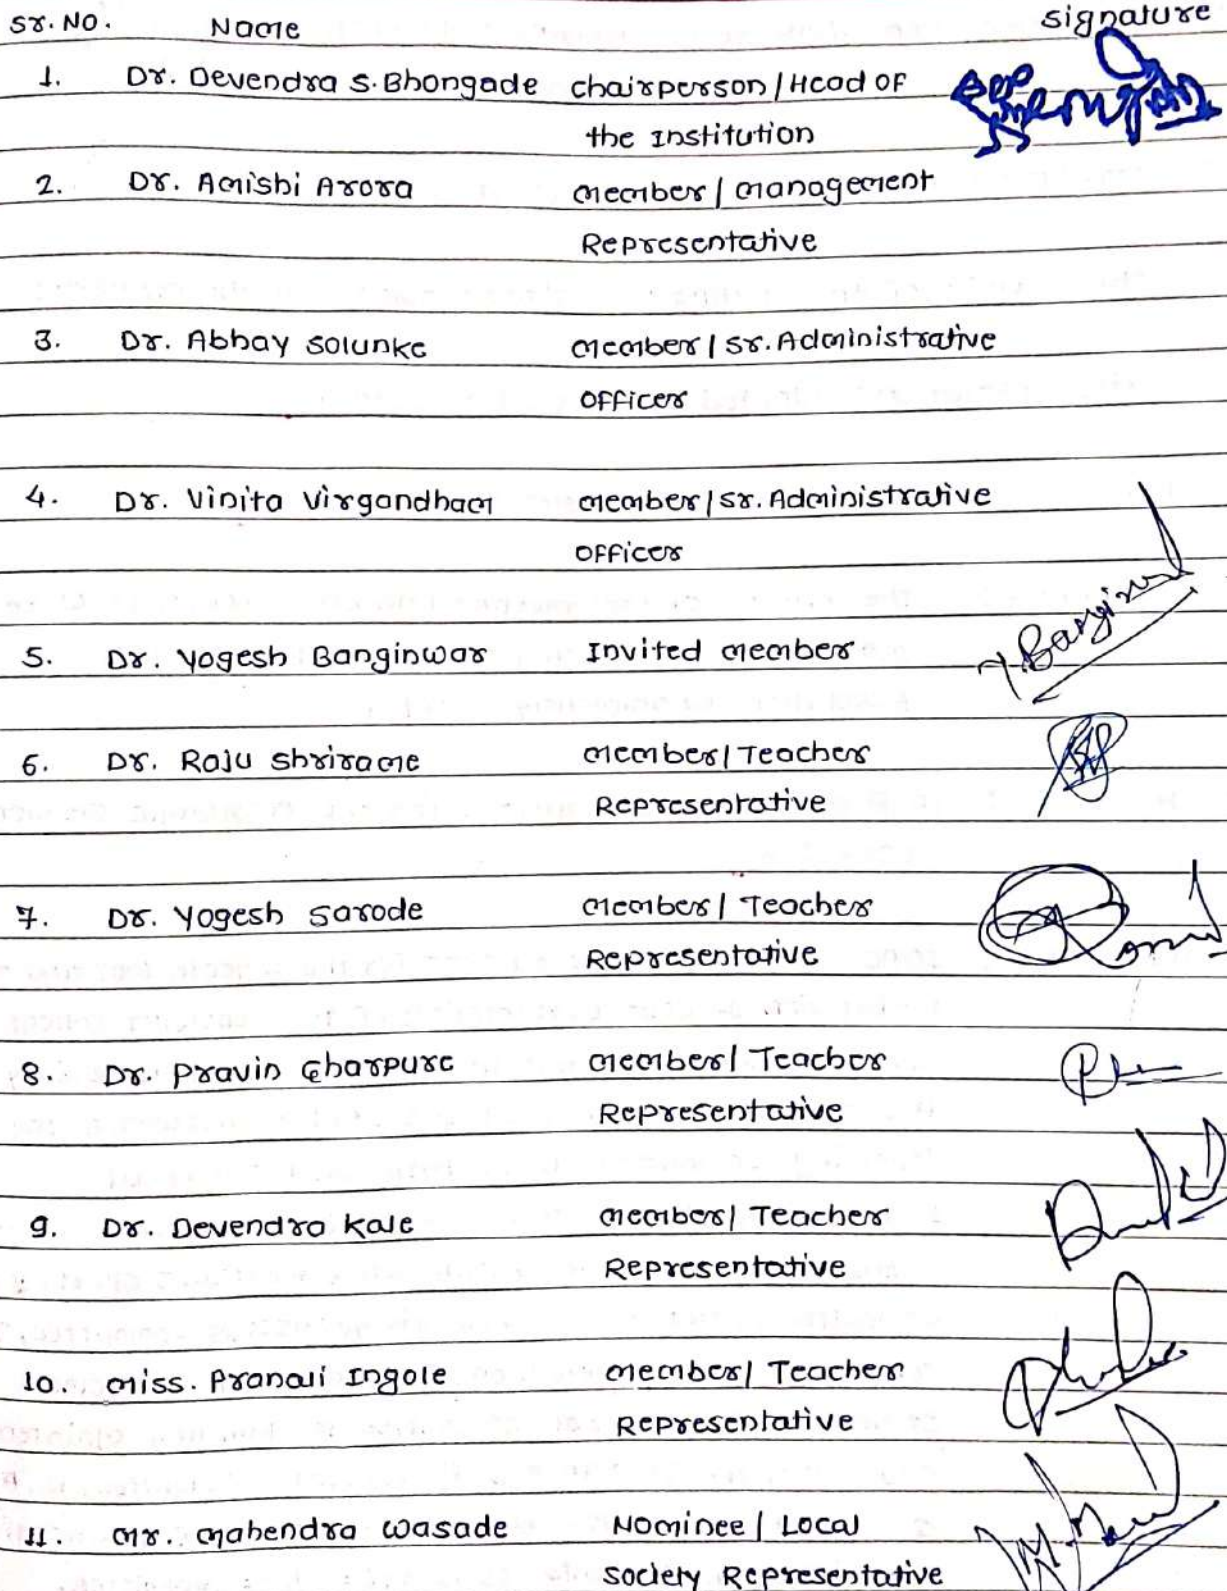 Sr. No. Name signature
1. Dr. Devendra S. Bhongade chairperson / Head of
the Institution
2. Dr. Amishi Arora member / management
Representative
3. Dr. Abhay Solunke member / Sr. Administrative
Officer
4. Dr. Vinita Virgandham member / Sr. Administrative
Officer
5. Dr. Yogesh Banginwar Invited member Y. Banginwar
6. Dr. Raju Shrirame member / Teacher
Representative
7. Dr. Yogesh Sarode member / Teacher
Representative
8. Dr. Pravin Gharpure member / Teacher
Representative
9. Dr. Devendra Kale member / Teacher
Representative
10. miss. Pranali Ingole member / Teacher
Representative
11. mr. mahendra wasade Nominee / Local
society Representative